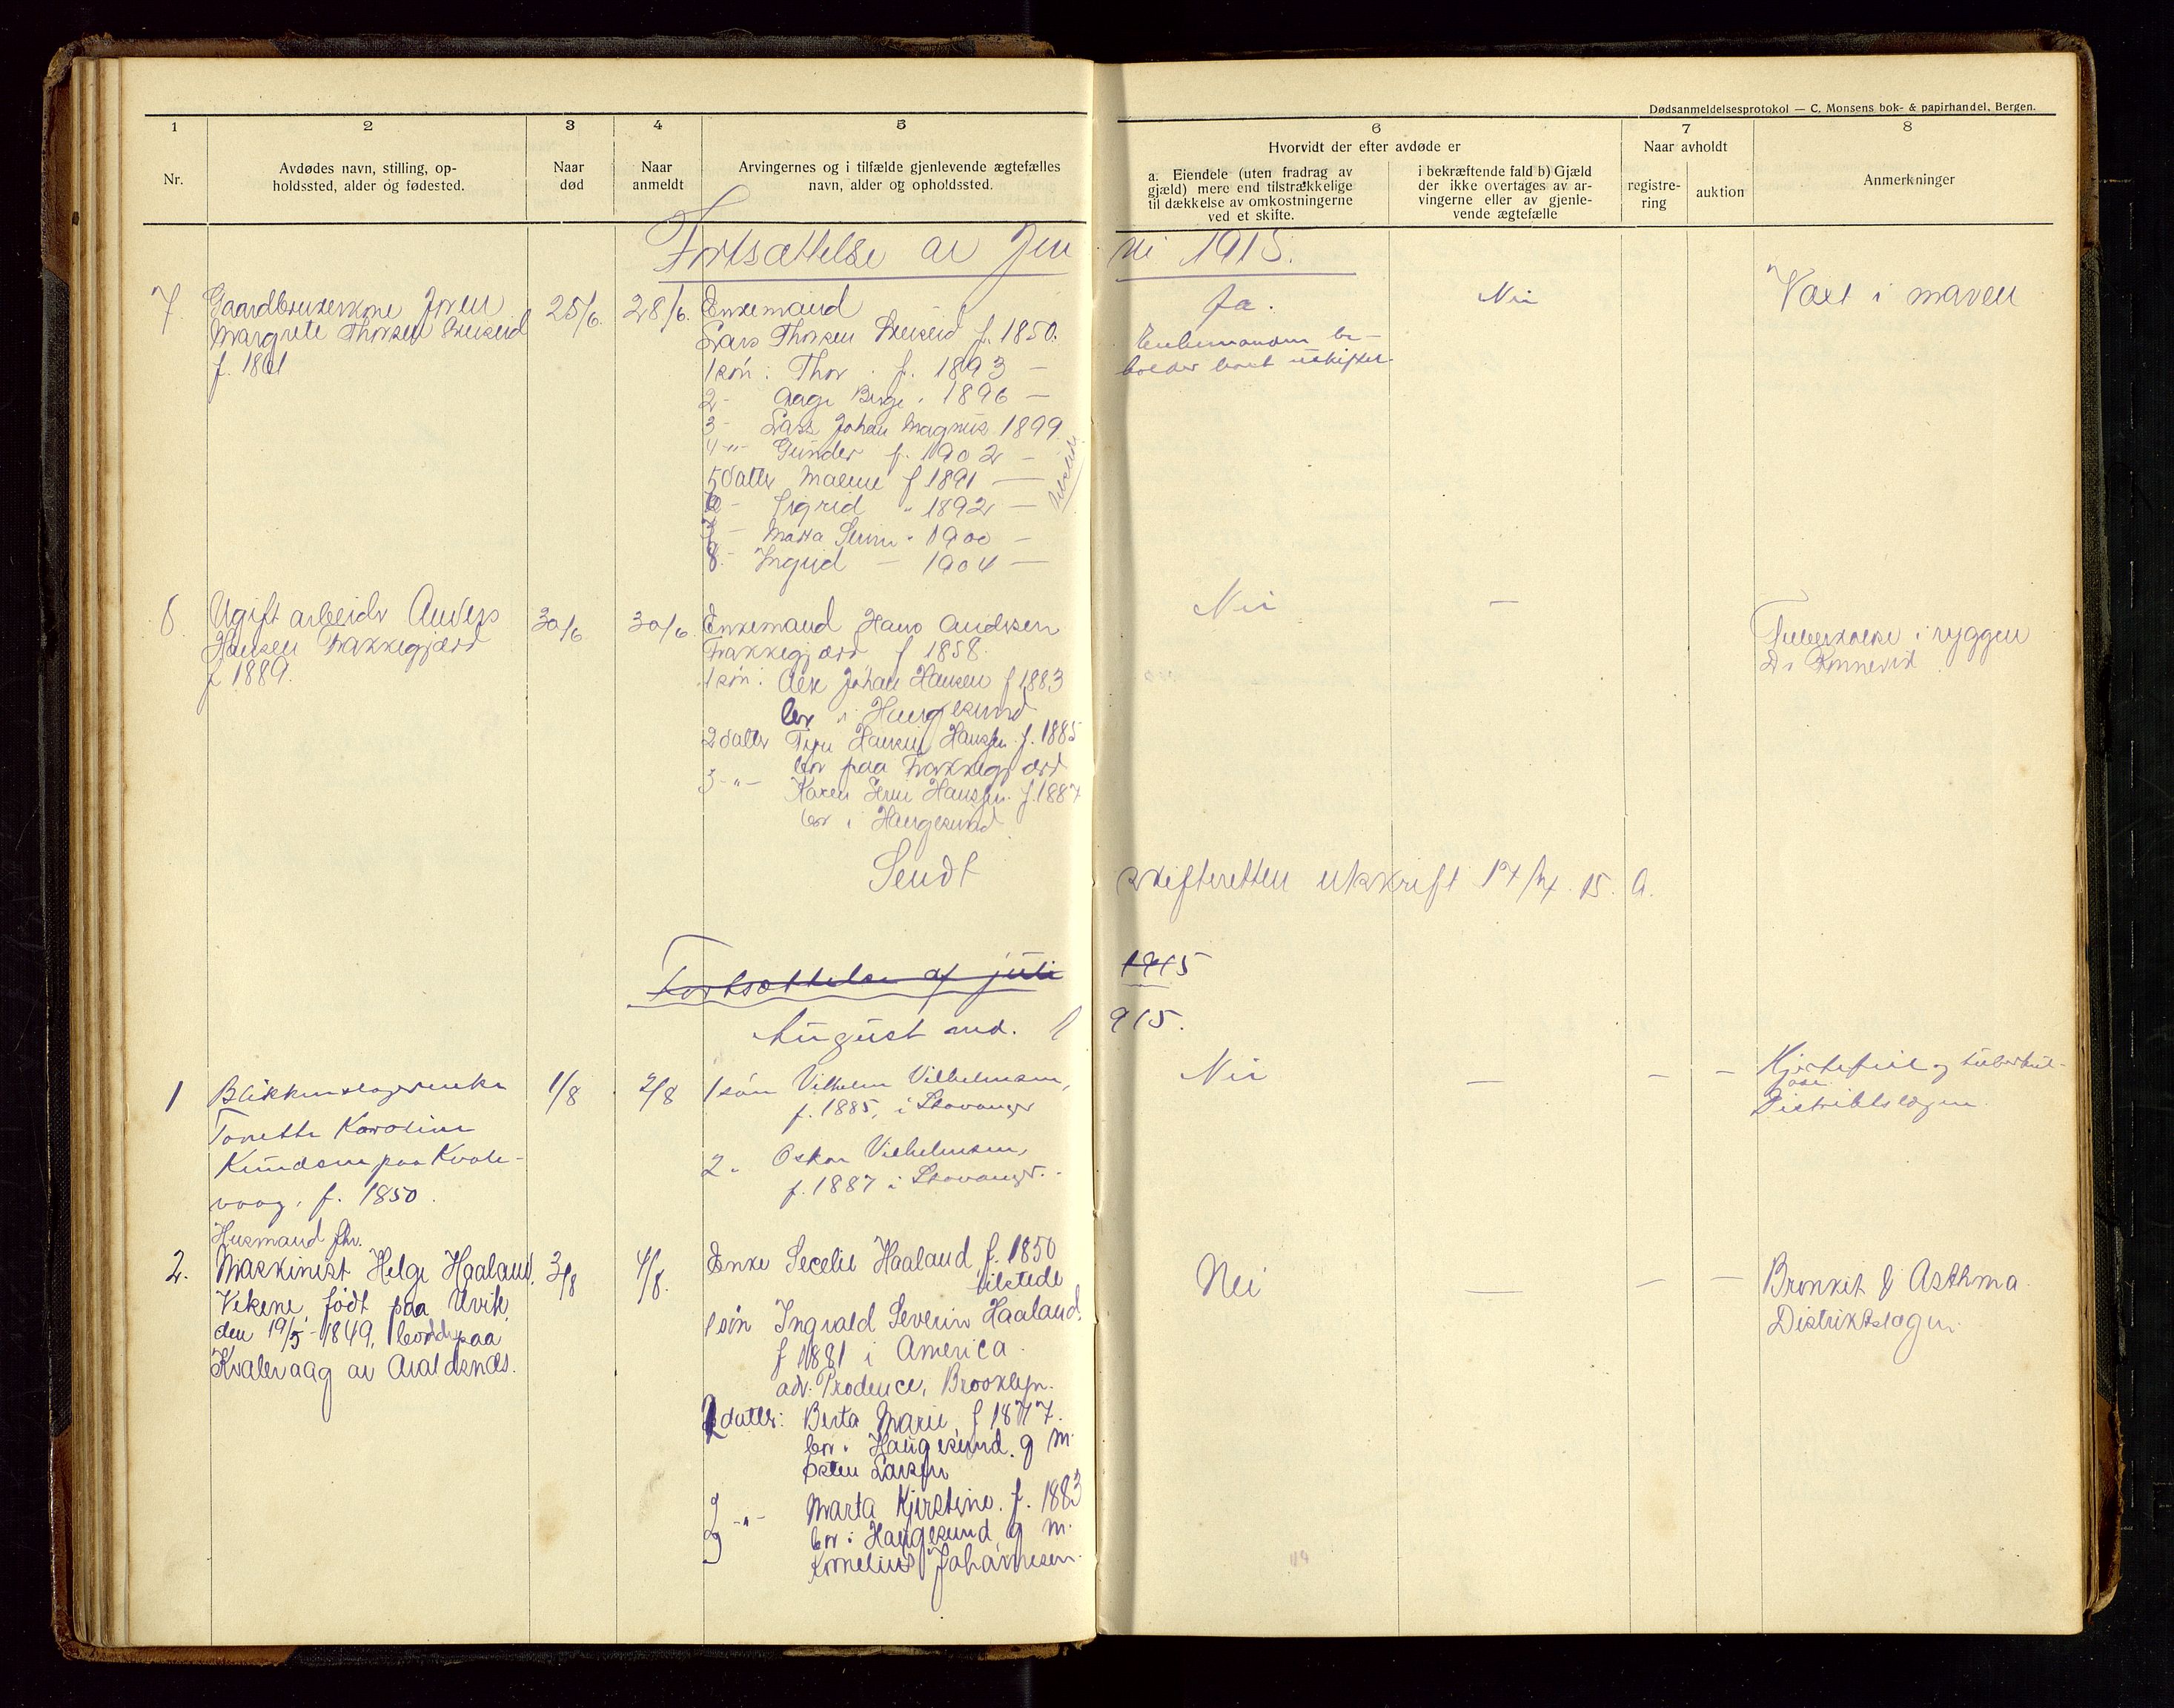 Dødsanmeldelsesprotokol — C. Monsens bok- & papirhandel, Bergen.
1 2 3 4 5 6 7 8
Nr.
Avdødes navn, stilling, op-
holdssted, alder og fødested.
Naar
død
Naar
anmeldt
Arvingernes og i tilfælde gjenlevende ægtefælles
navn, alder og opholdssted.
Hvorvidt der efter avdøde er
a. Eiendele (uten fradrag av
gjæld) mere end tilstrækkelige
til dækkelse av omkostningerne
ved et skifte.
i bekræftende fald b) Gjæld
der ikke overtages av ar-
vingerne eller av gjenle-
vende ægtefælle
Naar avholdt
registre-
ring
auktion
Anmerkninger
Fortsættelse av Juni 1915.
7 Gaardbrukerkone Joren
Margrete Thorsen
f. 1861
25/6. 28/6.
Enkemand
Lars Thorsen f. 1850.
1 søn: Thor f. 1893 —
2 - Aage Berge " 1896 —
3 - Lars Johan Magnus 1899
4 -"- Gunder f. 1902 —
5 datter Malene f 1891 —
6 - Sigrid " 1892 —
7 - Marta Serine " 1900 —
8 - Ingrid — 1904 —
Ja.
Enkemanden be-
holder boet uskiftet
Nei
Væxt i maven
8. Ugift arbeider Anders
Hansen Trækkegjærd
f 1889.
30/6 30/6
Enkemand Hans Andersen
Trækkegjærd f 1858.
1 søn: Johan Hansen f 1883
bor i Haugesund
2 datter Hansen f. 1885
bor paa Trækkegjærd
3 -"- Karen Hansen. f. 1887
bor i Haugesund
Nei —
Tuberkulose i ryggen
Dr
Sendt skifteretten utskrift 17/7. 15. A.
Fortsættelse af juli 1915
August md. 1915.
1 Blikkenslagerenke
Tonette Karoline
Knudsen paa Kvale-
vaag, f. 1850.
1/8 2/8
1 søn Vilhelm Vilhelmsen,
f. 1885, i Stavanger
2 " Oskar Vilhelmsen,
f. 1887 i Stavanger.
Nei — — —
Hjertefeil og tuberkul-
ose
Distriktslægen
Husmand fhv.
2. Maskinist Helge Haaland,
Vikene, født paa Utvik,
den 19/5-1849, bodde paa
Kvalevaag av Avaldsnæs.
3/8 4/8.
Enke Secelie Haaland f. 1850
tilstede
1 søn Ingvald Severin Haaland,
f 1881 i America.
adr: Prodence, Brooklyn.
2 datter: Berta Marie f 1877.
bor i Haugesund. g m.
Østen Larsen
3 -"- Marta Kjerstine. f. 1883
bor i Haugesund g m.
Kornelius Johannesen.
Nei — — —
Bronkit & Asthma
Distriktslægen.